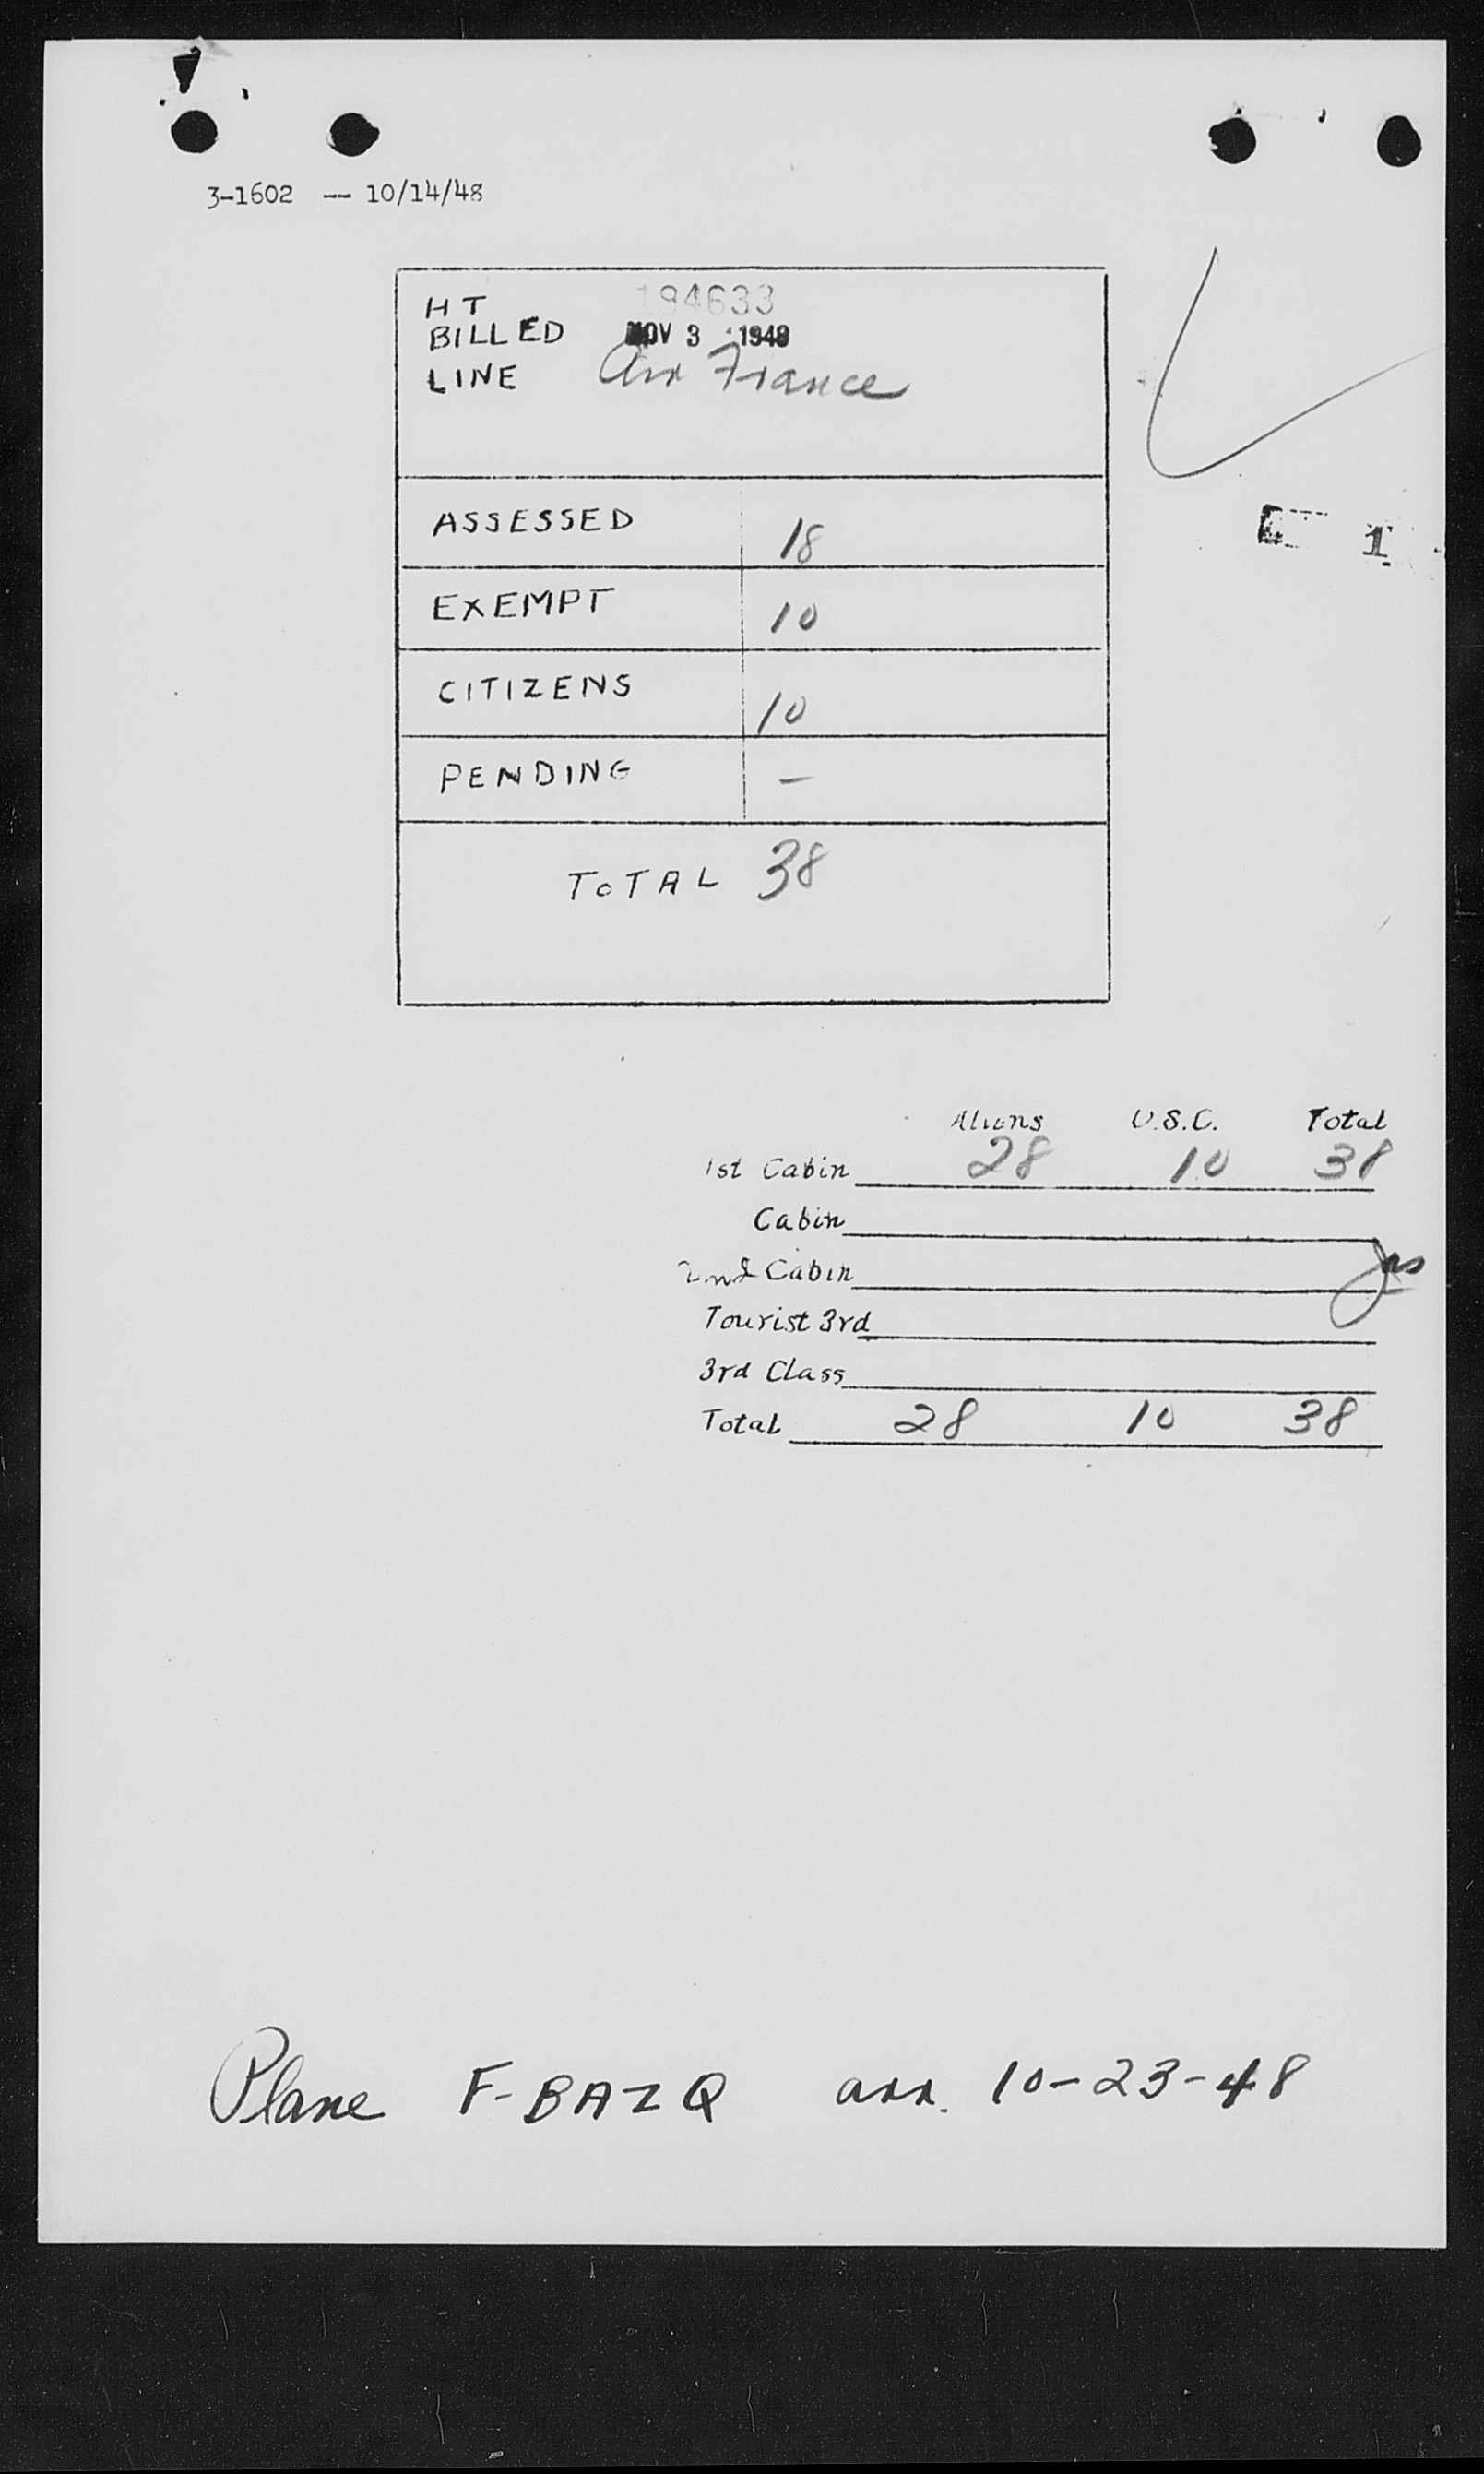 3-1602 — 10/14/48
HT 194633
BILLED NOV 3 1948
LINE Air France
ASSESSED 18
EXEMPT 10
CITIZENS 10
PENDING —
TOTAL 38
1
Aliens U.S.C. Total
1st Cabin 28 10 38
Cabin
2nd Cabin
Tourist 3rd
3rd Class
Total 28 10 38
Plane F-BAZQ arr. 10-23-48